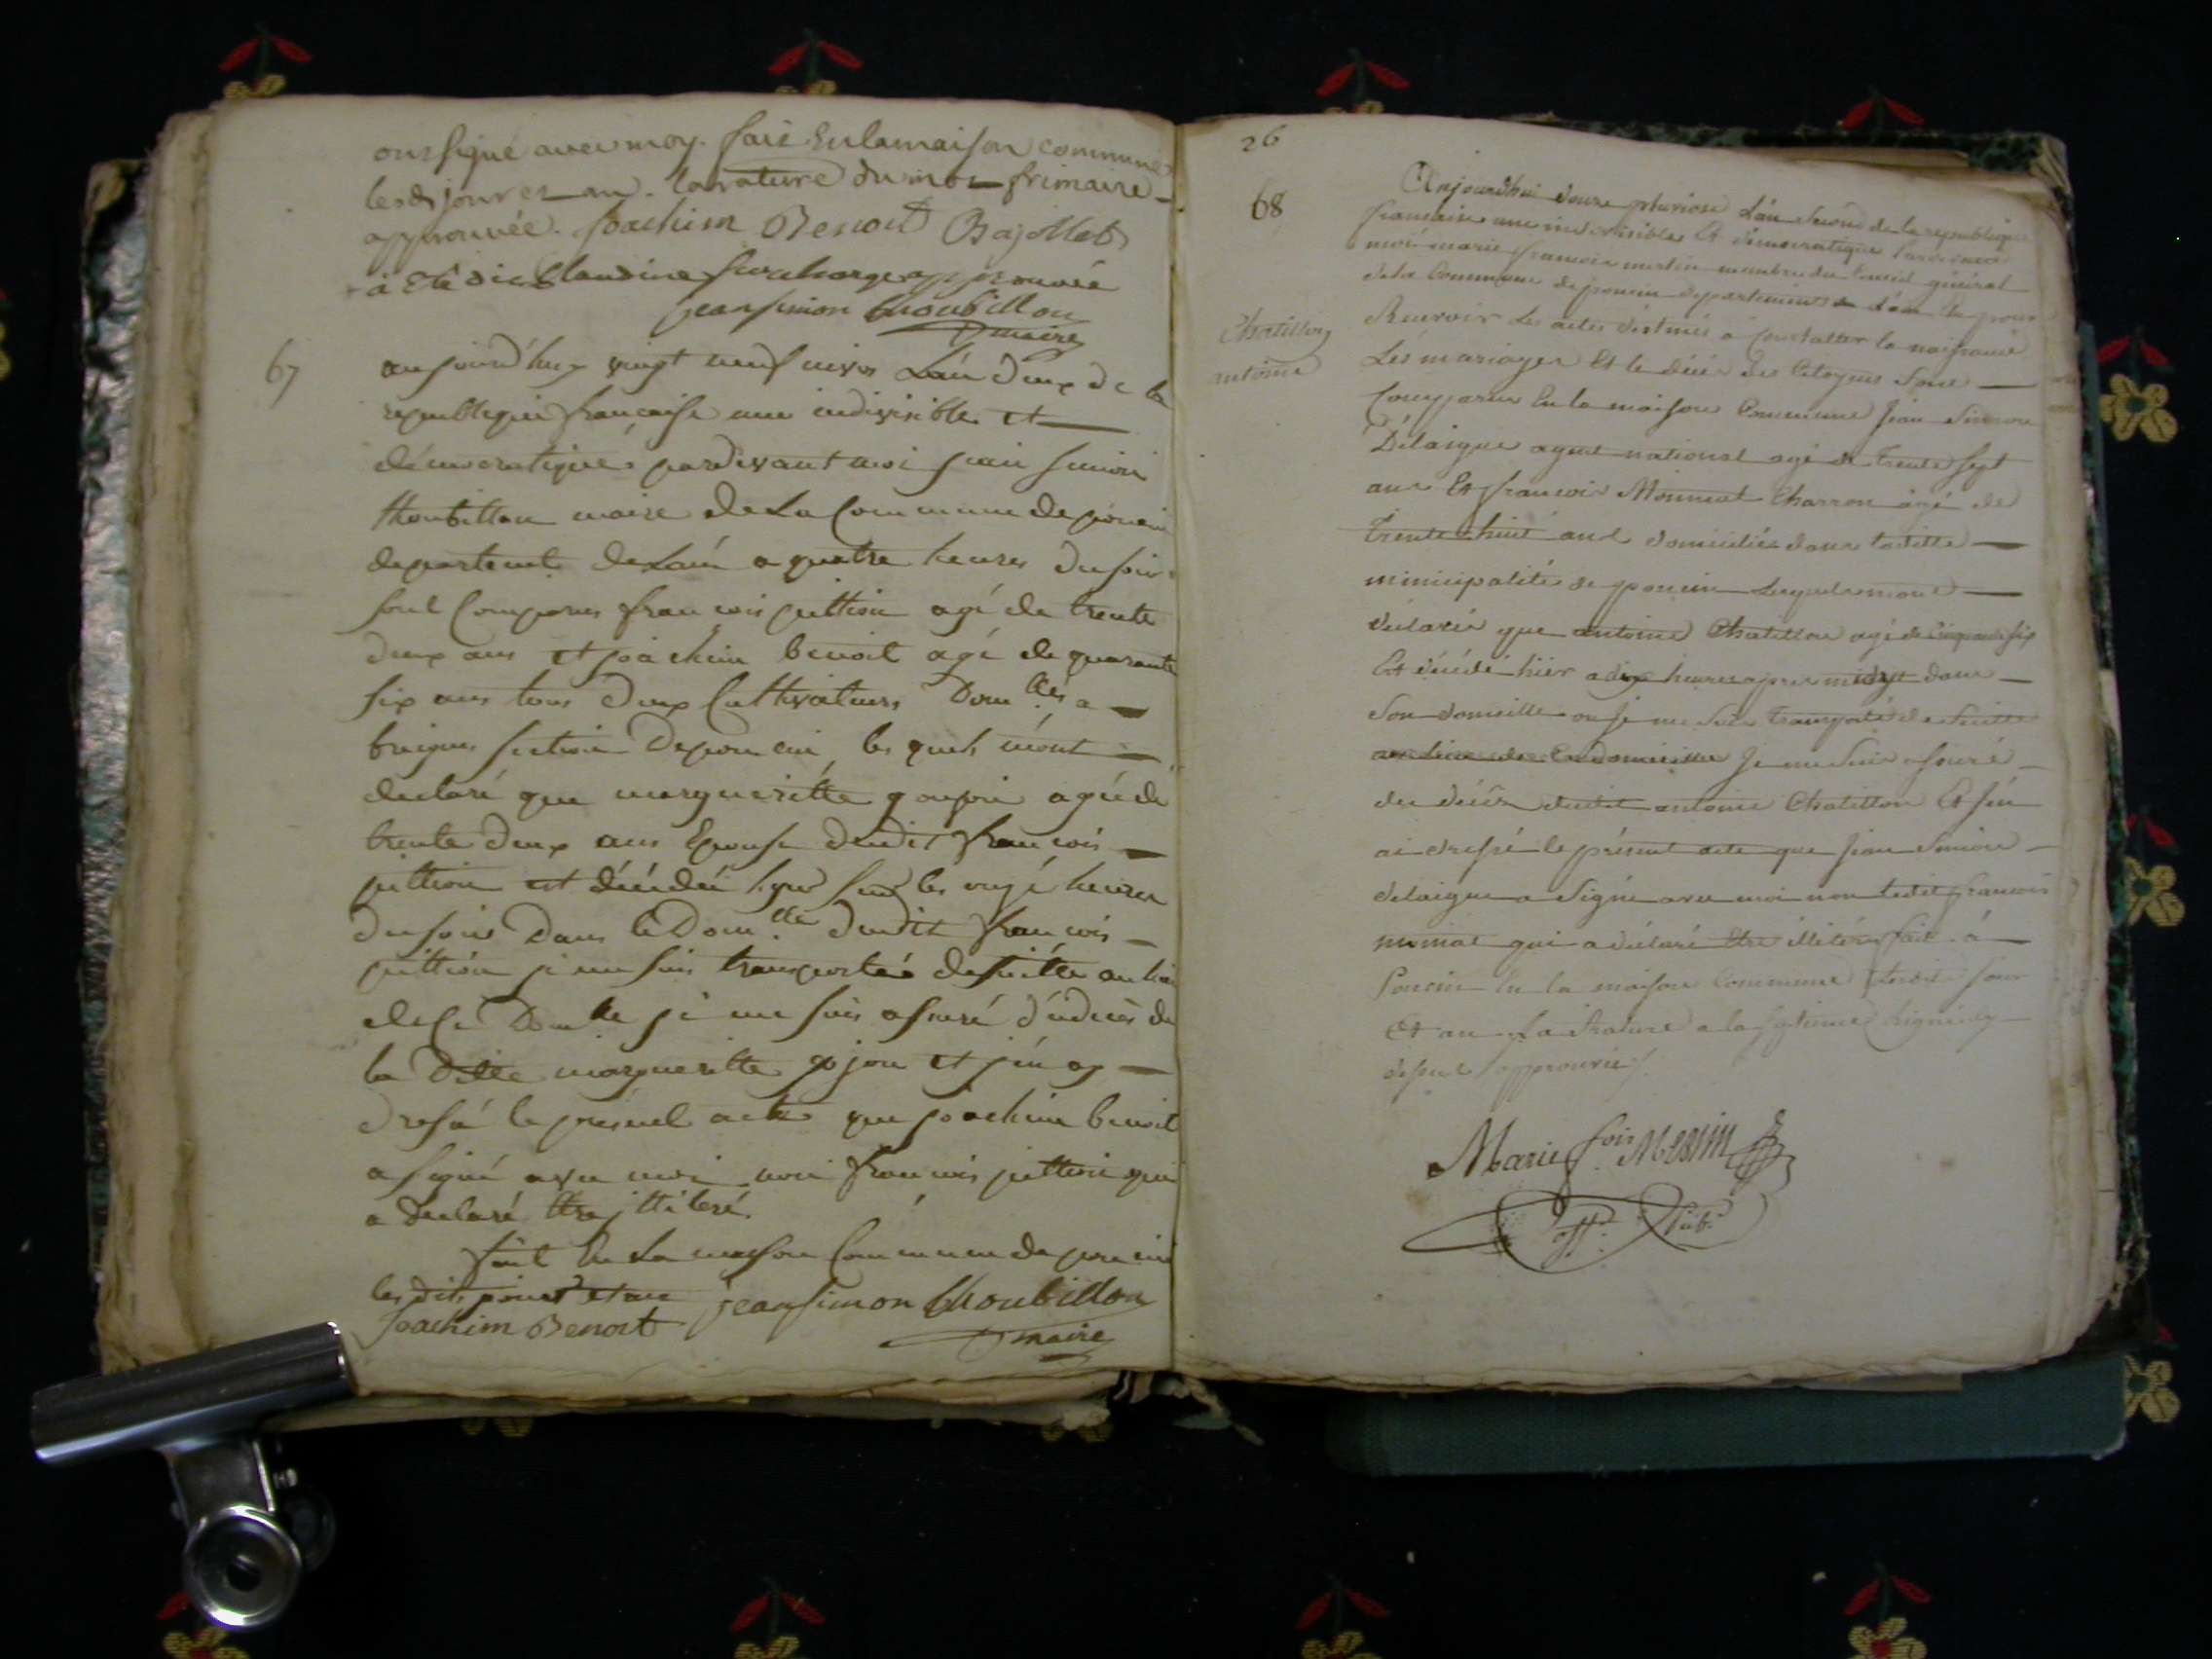 ont signé avec moy. fait en la maison commune
lesds jour et an. la rature du mot frimaire
approuvée. Joachim Benoit Bajollet
à eté dis Claudine surcharge approuvée
jean simon thoubillon
maire
67
aujourd'huy vingt neuf nivos L'án deux de la
republique française une indivisible et
démocratique pardevant moi jean simon
thoubillon maire de La Commune de poncin
departemt de L'ain a quatre heures du soir
sont Comparus francois pittion agé de trente
deux ans et joachim benoit agé de quarante
six ans tous deux Cultivateurs Domlies a
section de poncin les quels m'ont
declaré que margueritte goujon agée de
trente deux ans Epouse dudit francois
pittion et décédée hyer sur les onze heures
du soir Dans le Domlle dudit francois
pittion je me suis transporté de suitte au lieu
de Ce Domlle je me suis assuré du décès de
la Ditte margueritte gojon et j'en ay
dressé le présent acte que joachim benoit
a signé avec moi non francois pittion qui
a declaré Etre illiteré.
fait En La maison Commune de poncin
les dits jour et an jean simon thoubillon
Joachim Benoit maire
26
68
Chatillon
antoine
Aujourd'hui douze pluviose L'án Second de la republique
francaise une indivisible Et démocratique Pardevant
moi marie francois mertin membre du Conseil général
de la Commune de poncin departement de L'ain Elu pour
Recevoir Les actes destinés a Constatter la naissance
Les mariages Et le décés des Citoyens Sont
Comparus En la maison Commune Jean Simon
Délaigue agent national agé de trente sept
ans Et francois Monnat Charron agé de
trente huit ans domiciliés dans laditte
minicipalité de poncin Lesquels mont
déclaré que antoine Chatillon agé de Cinquante six
Est décédé hier a dix heures apres midy dans
Son domicille ou Je me Suis transporté de Suitte
au lieu de Ce domicille Je me Suis assuré
du décés dudit antoine Chatillon Et j'en
ai dressé le présent acte que Jean Simon
delaigue a Signé avec moi non ledit francois
monnat qui a déclaré Etre illiteré fait á
Poncin En la maison Commune Lesdits Jour
Et an La Rature a la ligne
dessus approuvée.
Marie fois Mertin
off. Pub.